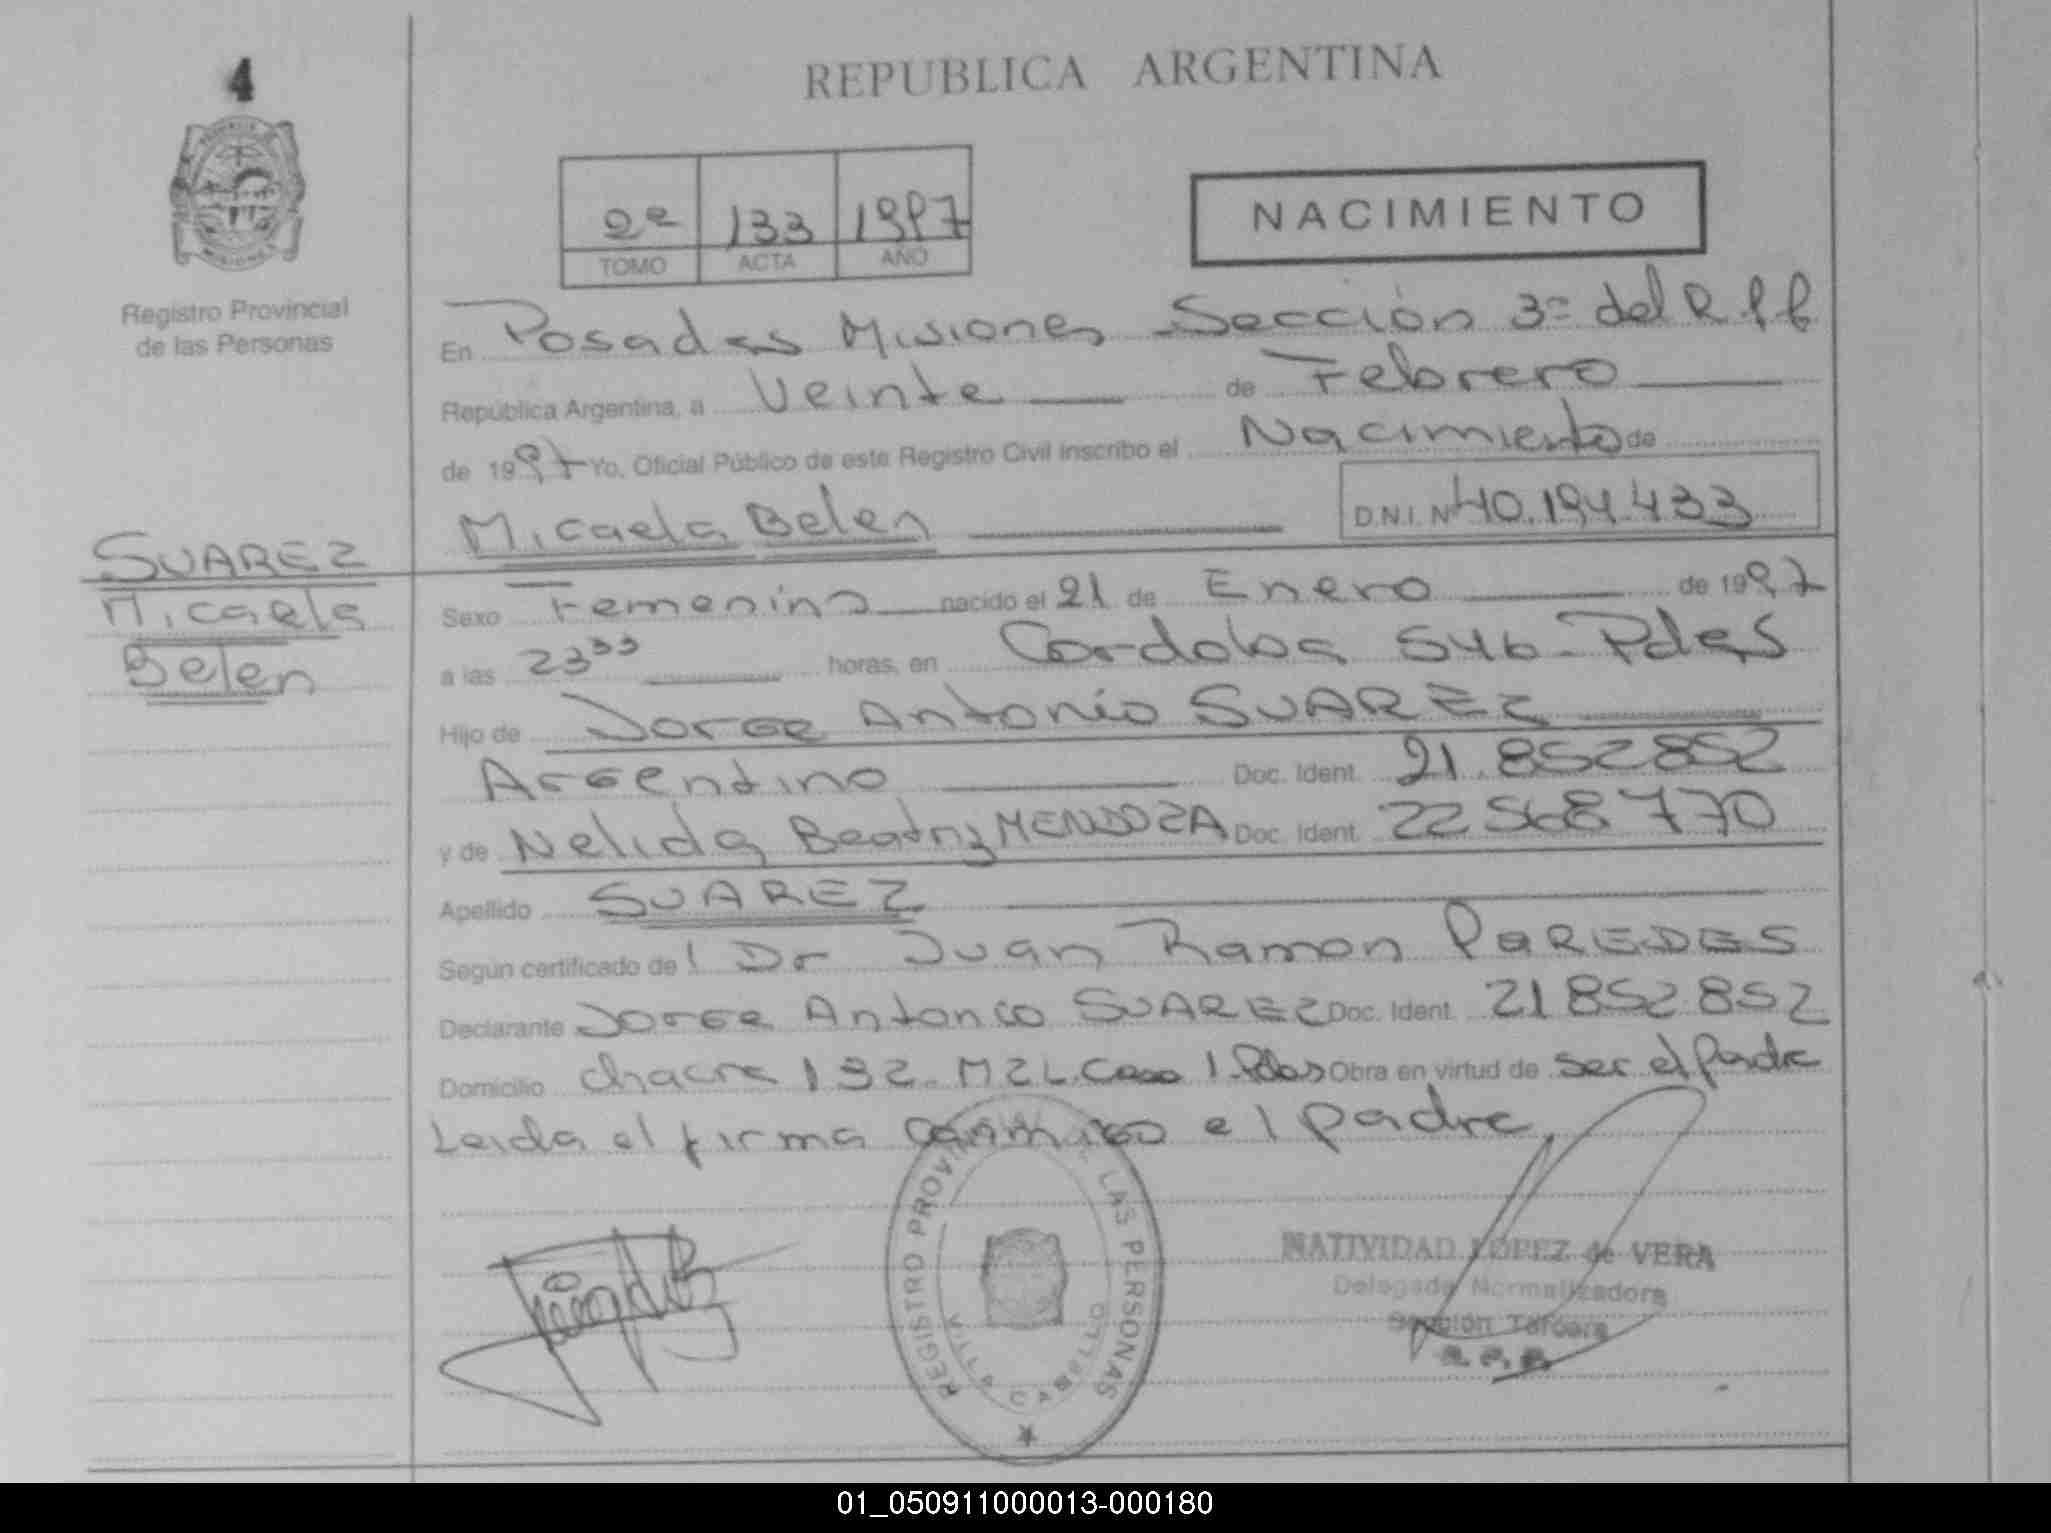 4
REPUBLICA ARGENTINA
2º 133 1997
TOMO ACTA AÑO
NACIMIENTO
Registro Provincial
de las Personas
En Posadas Misiones Sección 3ª del R.P.P
República Argentina, a Veinte de Febrero
de 1997 Yo, Oficial Público de este Registro Civil inscribo el Nacimiento de
Micaela Belen D.N.I. Nº 40.194.433
SUAREZ
Micaela
Belen
Sexo Femenino nacido el 21 de Enero de 1997
a las 23 33 horas, en Cordoba 546 - Pdas
Hijo de Jorge Antonio SUAREZ
Argentino Doc. Ident. 21.852852
y de Nelida Beatriz MENDOZA Doc. Ident. 22568770
Apellido SUAREZ
Según certificado de l Dr Juan Ramon PAREDES
Declarante Jorge Antonio SUAREZ Doc. Ident. 21852852
Domicilio chacra 132 MZ L Casa 1 Pdas Obra en virtud de ser el padre
Leida el firma conmigo el padre,
REGISTRO PROVINCIAL LAS PERSONAS
VILLA CABELLO
NATIVIDAD LOPEZ de VERA
Delegada Normalizadora
Sección Tercera
R.P.P.
01_050911000013-000180